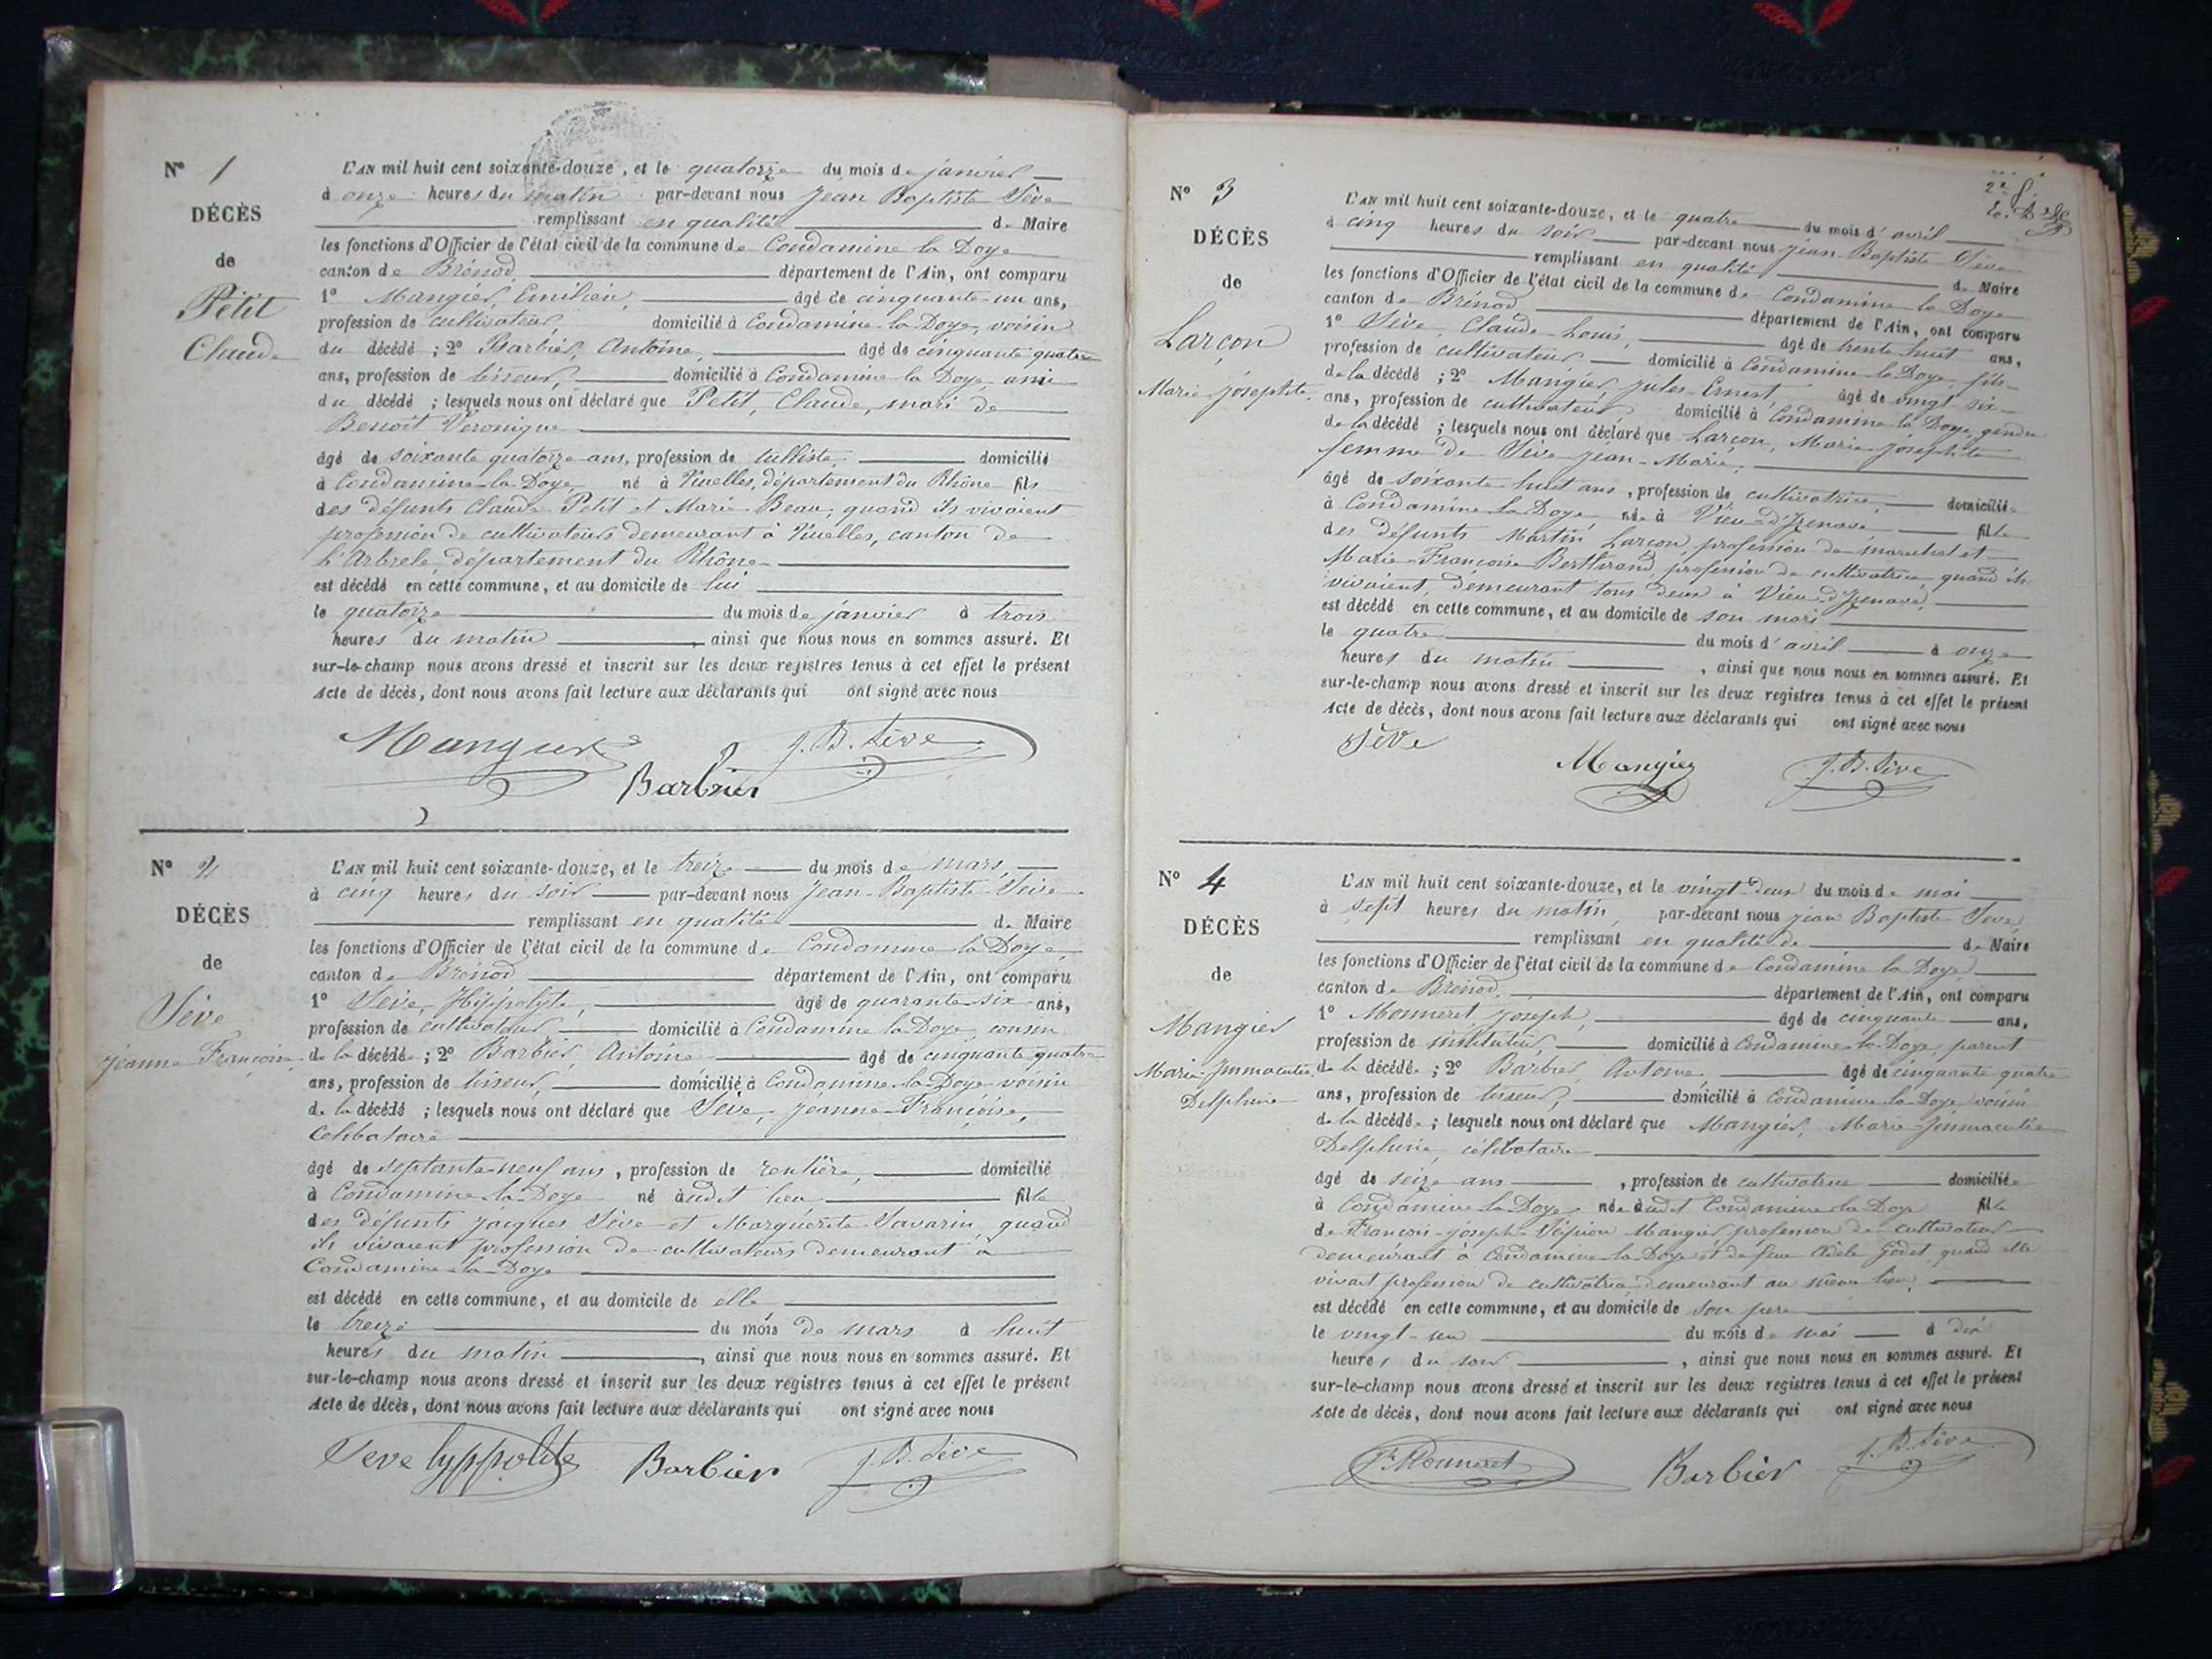 N° 1
DÉCÈS
de
Petit
Claude
L'AN mil huit cent soixante-douze, et le quatorze du mois de janvier
à onze heures du matin par-devant nous Jean Baptiste Sève
remplissant en qualité de Maire
les fonctions d'Officier de l'état civil de la commune de Condamine la Doye
canton de Brénod département de l'Ain, ont comparu
1° Mangier, Emilien, âgé de cinquante-un ans,
profession de cultivateur, domicilié à Condamine-la-Doye, voisin
du décédé ; 2° Barbier, Antoine, âgé de cinquante quatre
ans, profession de tisseur, domicilié à Condamine-la-Doye, ami
du décédé ; lesquels nous ont déclaré que Petit, Claude, mari de
Benoit Veronique
âgé de soixante quatorze ans, profession de tulliste, domicilié
à Condamine-la-Doye né à Nuelles, département du Rhône fils
des défunts Claude Petit et Marie Beau, quand ils vivaient
profession de cultivateurs demeurant à Nuelles, canton de
L'Arbrele, département du Rhône
est décédé en cette commune, et au domicile de lui
le quatorze du mois de janvier à trois
heures du matin, ainsi que nous nous en sommes assuré. Et
sur-le-champ nous avons dressé et inscrit sur les deux registres tenus à cet effet le présent
Acte de décès, dont nous avons fait lecture aux déclarants qui ont signé avec nous
Mangier
Barbier
J. B. Sève
N° 2
DÉCÈS
de
Sève
Jeanne Françoise
L'AN mil huit cent soixante-douze, et le treize du mois de mars,
à cinq heures du soir par-devant nous Jean-Baptiste Sève
remplissant en qualité de Maire
les fonctions d'Officier de l'état civil de la commune de Condamine la Doye,
canton de Brénod département de l'Ain, ont comparu
1° Sève, Hippolyte, âgé de quarante six ans,
profession de cultivateur domicilié à Condamine la Doye, cousin
de la décédée ; 2° Barbier, Antoine âgé de cinquante quatre
ans, profession de tisseur, domicilié à Condamine-la-Doye voisin
de la décédé ; lesquels nous ont déclaré que Sève, Jeanne-Françoise,
Celibataire
âgé de septante-neuf ans, profession de rentière, domicilié
à Condamine-la-Doye né àudit lieu fille
des défunts Jacques Sève et Marguerite Savarin, quand
ils vivaient profession de cultivateurs demeurant à
Condamine-la-Doye
est décédé en cette commune, et au domicile de elle
le treize du mois de mars à huit
heures du matin, ainsi que nous nous en sommes assuré. Et
sur-le-champ nous avons dressé et inscrit sur les deux registres tenus à cet effet le présent
Acte de décès, dont nous avons fait lecture aux déclarants qui ont signé avec nous
Seve hyppolite
Barbier
J. B. Sève
N° 3
DÉCÈS
de
Larçon
Marie-Josephte
L'AN mil huit cent soixante-douze, et le quatre du mois d'avril
à cinq heures du soir par-devant nous Jean-Baptiste Sève
remplissant en qualité de Maire
les fonctions d'Officier de l'état civil de la commune de Condamine la Doye
canton de Brénod département de l'Ain, ont comparu
1° Sève, Claude-Louis, âgé de trente huit ans,
profession de cultivateur domicilié à Condamine la Doye, fils
de la décédé ; 2° Mangier, Jules-Ernest, âgé de vingt six
ans, profession de cultivateur domicilié à Condamine la Doye, gendre
de la décédé ; lesquels nous ont déclaré que Larçon, Marie-Josephte
femme de Sève Jean-Marie,
âgé de soixante huit ans, profession de cultivatrice, domiciliée
à Condamine-la-Doye née à Vieu-d'Izenave fille
des défunts Martin Larçon, profession de maréchal et
Marie-Françoise Berthrand, profession de cultivatrice, quand ils
vivaient, demeurant tous deux à Vieu-d'Izenave,
est décédé en cette commune, et au domicile de son mari
le quatre du mois d'avril à onze
heures du matin, ainsi que nous nous en sommes assuré. Et
sur-le-champ nous avons dressé et inscrit sur les deux registres tenus à cet effet le présent
Acte de décès, dont nous avons fait lecture aux déclarants qui ont signé avec nous
Sève
Mangier
J. B. Sève
N° 4
DÉCÈS
de
Mangier
Marie-Immaculée
Delphine
L'AN mil huit cent soixante-douze, et le vingt-deux du mois de mai
à sept heures du matin, par-devant nous Jean Baptiste Sève,
remplissant en qualité de de Maire
les fonctions d'Officier de l'état civil de la commune de Condamine la Doye
canton de Brénod, département de l'Ain, ont comparu
1° Monneret Joseph, âgé de cinquante ans,
profession de instituteur domicilié à Condamine-la-Doye, parent
de la décédée ; 2° Barbier, Antoine, âgé de cinquante quatre
ans, profession de tisseur, domicilié à Condamine la-Doye voisin
de la décédée ; lesquels nous ont déclaré que Mangier, Marie-Immaculée
Delphine, célibataire
âgé de seize ans, profession de cultivatrice domiciliée
à Condamine-la-Doye, née àudit Condamine-la-Doye fille
de François-Joseph Mangier profession de cultivateur
demeurant à Condamine-la-Doye et de feue Adèle Godet, quand elle
vivait profession de cultivatrice, demeurant au même lieu,
est décédé en cette commune, et au domicile de son père
le vingt-un du mois de mai à dix
heures du soir, ainsi que nous nous en sommes assuré. Et
sur-le-champ nous avons dressé et inscrit sur les deux registres tenus à cet effet le présent
Acte de décès, dont nous avons fait lecture aux déclarants qui ont signé avec nous
Monneret
Barbier
J. B. Sève